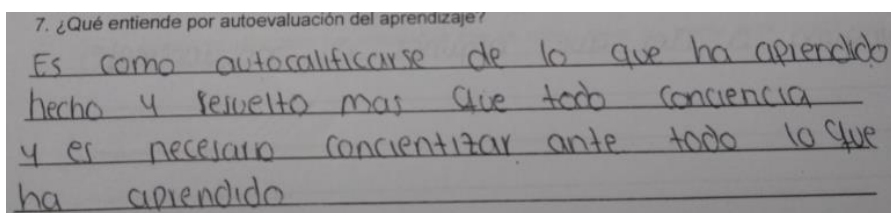 7. ¿Qué entiende por autoevaluación del aprendizaje?
Es como autocalificarse de lo que ha aprendido
hecho y resuelto mas que todo conciencia
y es necesario concientizar ante todo lo que
ha aprendido